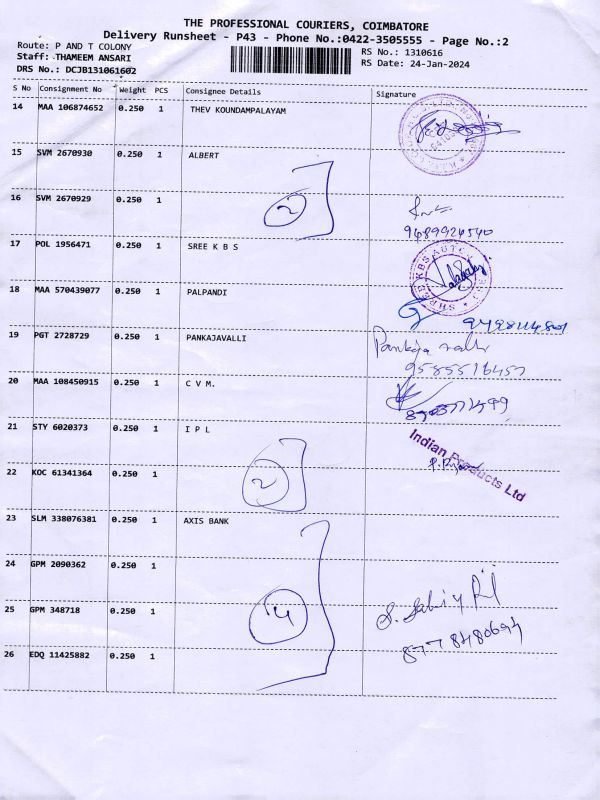 THE PROFESSIONAL COURIERS, COIMBATORE
Delivery Runsheet - P43 - Phone No.:0422-3505555 - Page No.:2
Route: P AND T COLONY
Staff: THAMEEM ANSARI
DRS No.: DCJB131061602
RS No.: 1310616
RS Date: 24-Jan-2024
S No Consignment No Weight PCS Consignee Details Signature
14 MAA 106874652 0.250 1 THEV KOUNDAMPALAYAM
15 SVM 2670930 0.250 1 ALBERT
2
16 SVM 2670929 0.250 1
9489924540
17 POL 1956471 0.250 1 SREE K B S
18 MAA 570439077 0.250 1 PALPANDI
19 PGT 2728729 0.250 1 PANKAJAVALLI
Pankaja valli
9585516457
20 MAA 108450915 0.250 1 C V M.
21 STY 6020373 0.250 1 I P L
Indian Products Ltd
22 KOC 61341364 0.250 1
2
23 SLM 338076381 0.250 1 AXIS BANK
24 GPM 2090362 0.250 1
25 GPM 348718 0.250 1
4
8778480694
26 EDQ 11425882 0.250 1